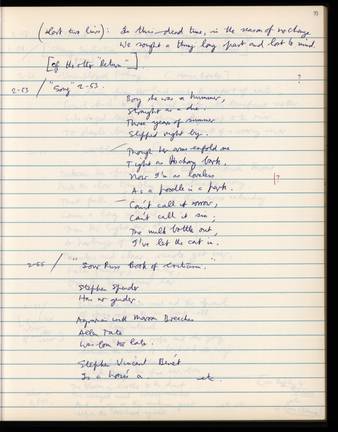 (Last two lines): In this dead time, in the season of no change
We sought a thing long past and lost to mind.
[Of the other
?
2-53 / "Song" 2-53.
Boy she was a hummer,
Straight as a die.
Three years of summer
Slipped right by.
Though her arms enfold me
Tight as hickory bark,
Now I'm as loveless
As a poodle in a park.
?
Can't call it sorrow,
Can't call it sin;
The milk bottle out,
I've let the cat in.
2-55 / "Book of
Stephen Spender
Has no gender.
Agrarian with Brooches
Allen Tate
Was born too late.
Stephen Vincent Benét
Is a horse's a etc.